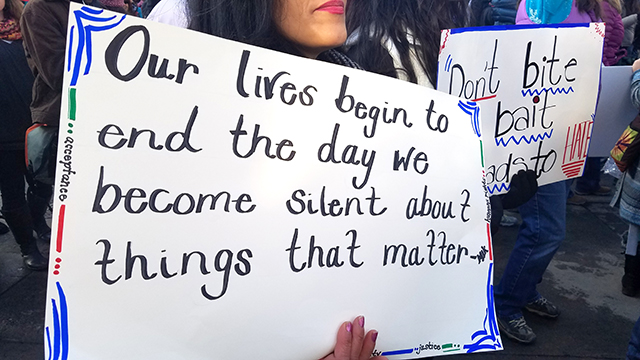 Our lives begin to
end the day we
become silent about
things that matter
acceptance
justice
"Don't bite
bait
to
HATE